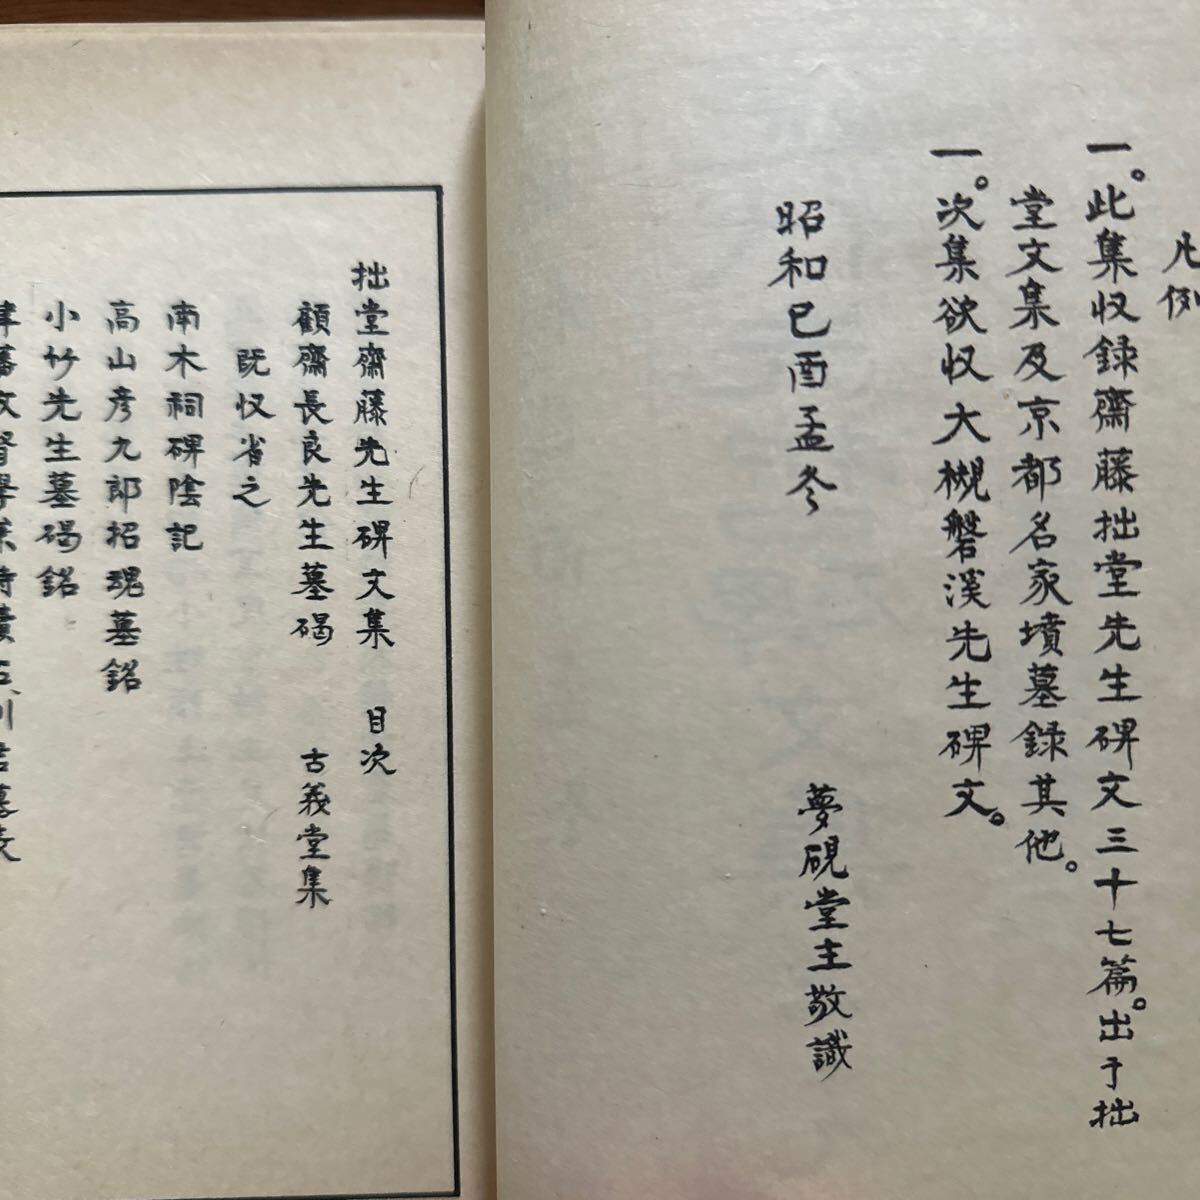 凡例
一。此集収録齋藤拙堂先生碑文三十七篇。出于拙
堂文集及京都名家墳墓録其他。
一。次集欲収大槻磐溪先生碑文。
昭和己酉孟冬
夢硯堂主敬識
拙堂齋藤先生碑文集 目次
顧齋長良先生墓碣 古義堂集
既収省之
南木祠碑陰記
高山彦九郎招魂墓銘
小竹先生墓碣銘
津藩文督學兼侍讀石川君墓表